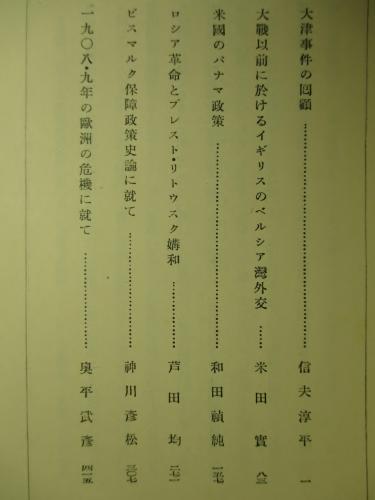 大津事件の囘顧……………………信夫淳平 一
大戰以前に於けるイギリスのペルシア灣外交……米田實 八三
米國のパナマ政策……………………和田禎純 一五七
ロシア革命とブレスト・リトウスク媾和……………芦田均 二七一
ビスマルク保障政策史論に就て…………………神川彥松 三〇七
一九〇八・九年の歐洲の危機に就て………………奥平武彥 四一五